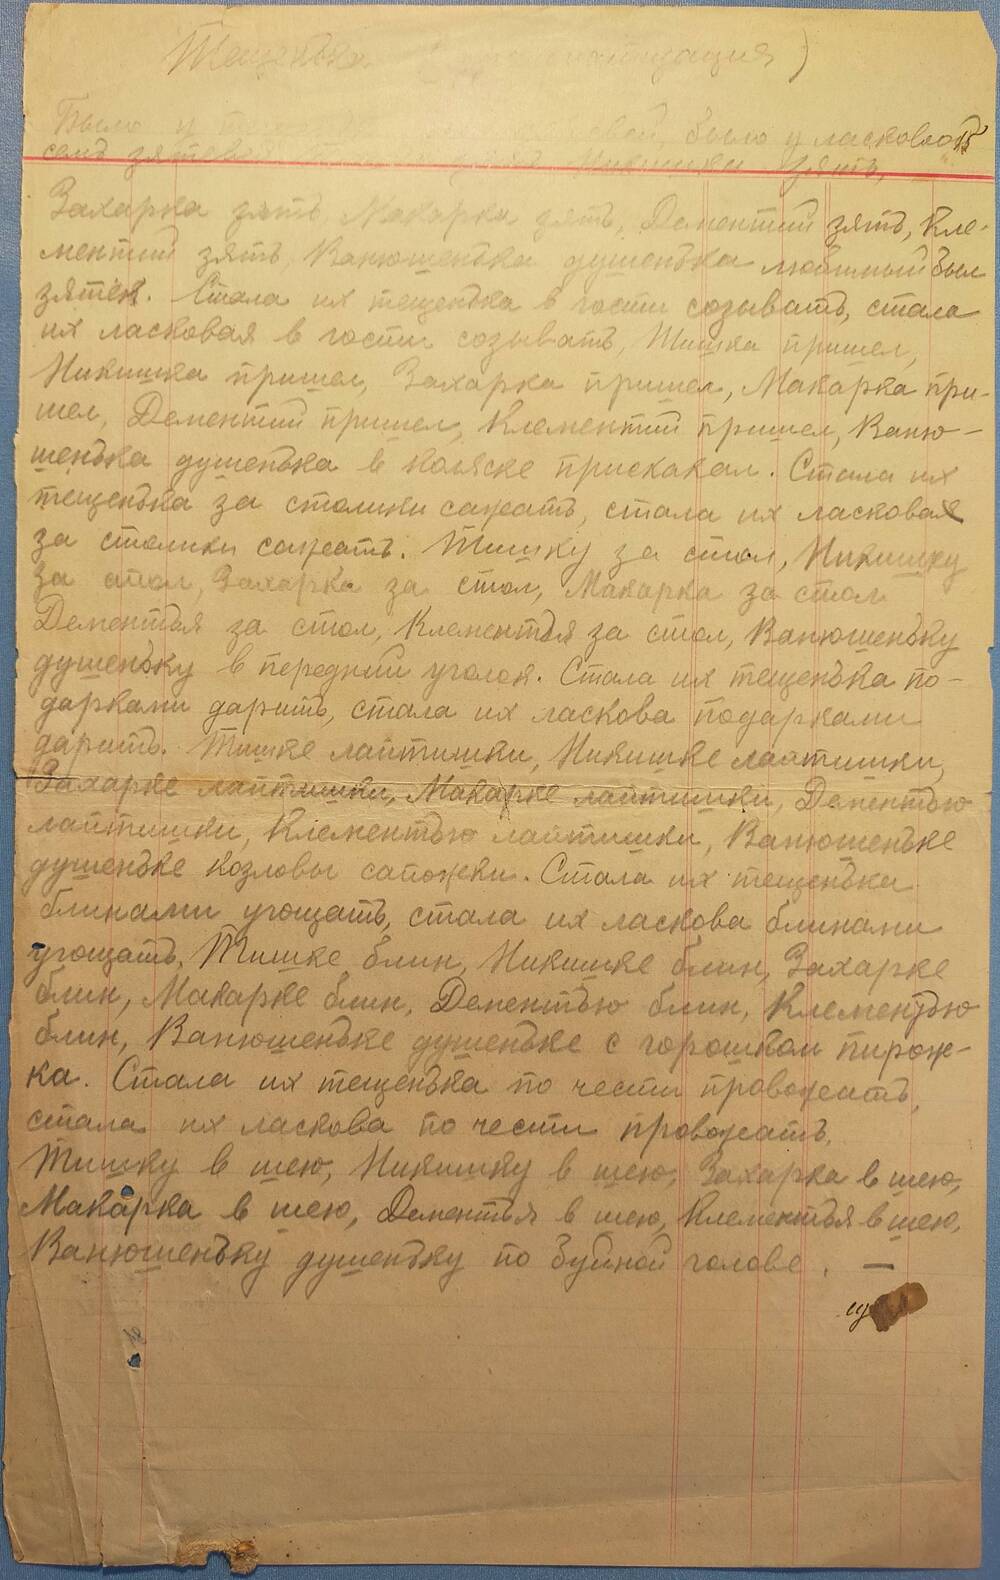 Тещенька
Было у было у ласковой
семь зятев Никишка зять,
Захарка зять, Макарка зять, Дементий зять, Кле-
ментий зять, Ванюшенька душенька любимый был
зятек. Стала их тещенька в гости созывать, стала
их ласковая в гости созывать, Тишка пришел,
Никишка пришел, Захарка пришел, Макарка при-
шел, Дементий пришел, Клементий пришел, Ваню-
шенька душенька в коляске прискакал. Стала их
тещенька за столики сажать, стала их ласковая
за столики сажать. Тишку за стол, Никишку
за стол, Захарка за стол, Макарка за стол
Дементья за стол, Клементья за стол, Ванюшеньку
душеньку в передний уголок. Стала их тещенька по-
дарками дарить, стала их ласкова подарками
дарить. Тишке лаптишки, Никишке лаптишки,
Захарке лаптишки, Макарке лаптишки, Дементью
лаптишки, Клементью лаптишки, Ванюшеньке
душеньке козловы сапожки. Стала их тещенька
блинами угощать, стала их ласкова блинами
угощать. Тишке блин, Никишке блин, Захарке
блин, Макарке блин, Дементью блин, Клементью
блин, Ванюшеньке душеньке с горошком пирож-
ка. Стала их тещенька по чести провожать,
стала их ласкова по чести провожать.
Тишку в шею, Никишку в шею, Захарка в шею,
Макарка в шею, Дементья в шею, Клементья в шею,
Ванюшеньку душеньку по буйной голове. —